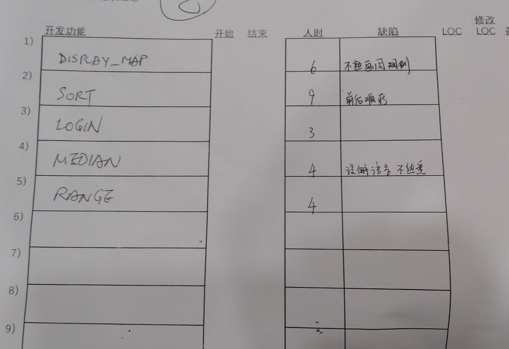 修改
开发功能 开始 结束 人时 缺陷 LOC LOC
1) DISPLAY_MAP 6 不熟
2) SORT 9 前后
3) LOGIN 3
4) MEDIAN 4 误解 不熟悉
5) RANGE 4
6)
7)
8)
9)